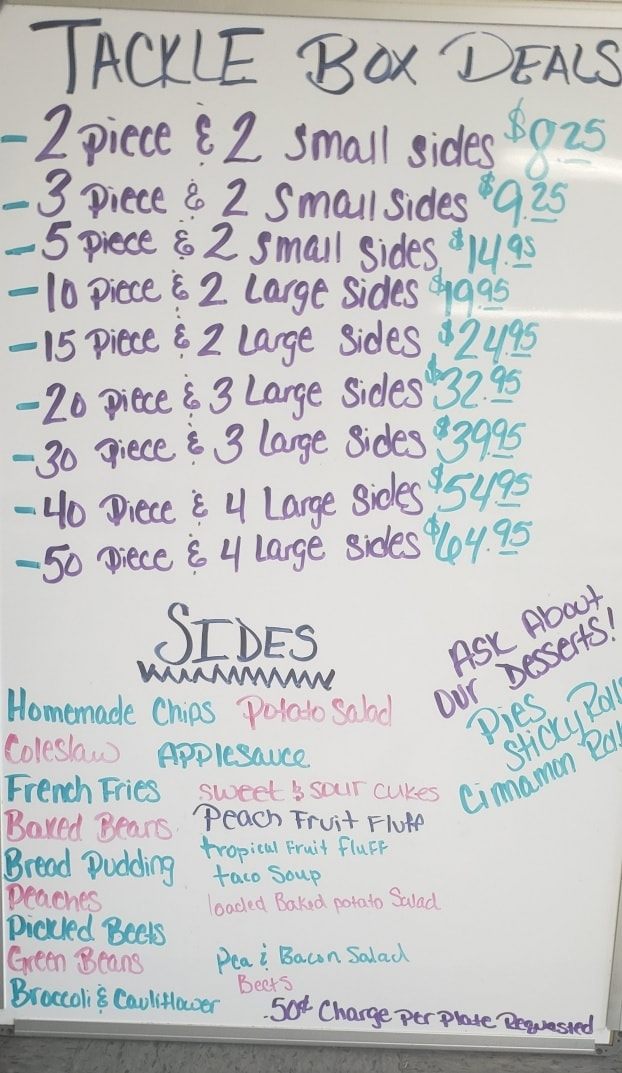 TACKLE BOX DEALS
- 2 piece & 2 small sides $8.25
- 3 piece & 2 small sides $9.25
- 5 piece & 2 small sides $14.95
- 10 piece & 2 Large sides $19.95
- 15 piece & 2 Large sides $24.95
- 20 piece & 3 Large sides $32.95
- 30 piece & 3 Large sides $39.95
- 40 piece & 4 Large sides $54.95
- 50 piece & 4 Large sides $64.95
SIDES
Ask About
Our Desserts!
Pies
Sticky Roll
Cinnamon Rol
Homemade Chips Potato Salad
Coleslaw Applesauce
French Fries sweet & sour cukes
Baked Beans Peach Fruit Fluff
Bread Pudding tropical Fruit Fluff
taco Soup
Peaches loaded Baked potato Salad
Pickled Beets
Green Beans Pea & Bacon Salad
Beets
Broccoli & Cauliflower
.50¢ Charge Per Plate Requested